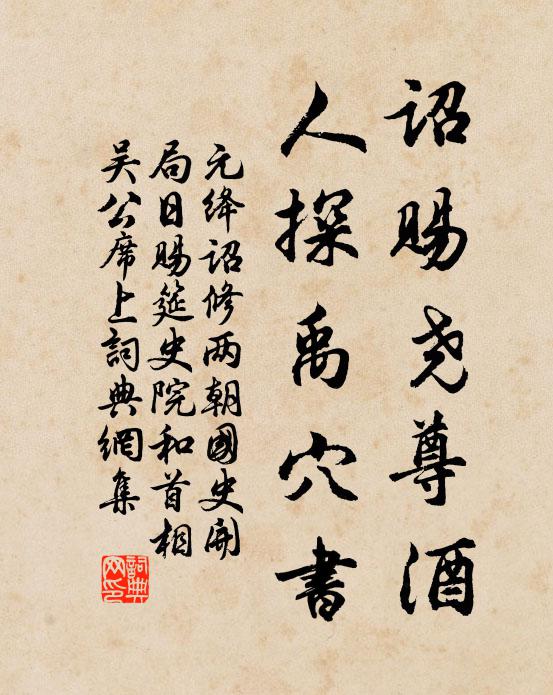 诏赐尧尊酒
人探禹穴書
元绛诏修两朝國史開
局日赐筵史院和首相
吴公席上詞典網集
詞典网印